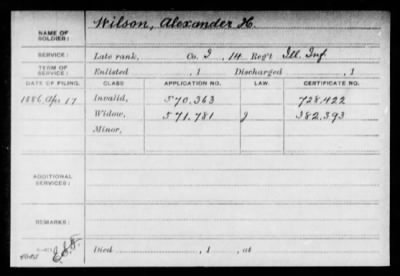 NAME OF SOLDIER: Wilson, Alexander H.
SERVICE: Late rank, Co. I, 14 Reg't Ill. Inf.
TERM OF SERVICE: Enlisted , 1 Discharged , 1
DATE OF FILING. CLASS APPLICATION NO. LAW. CERTIFICATE NO.
1886 Apr 17 Invalid, 570.363 728.422
Widow, 571.781 J 382.393
Minor,
ADDITIONAL SERVICES:
REMARKS:
Died , 1 , at